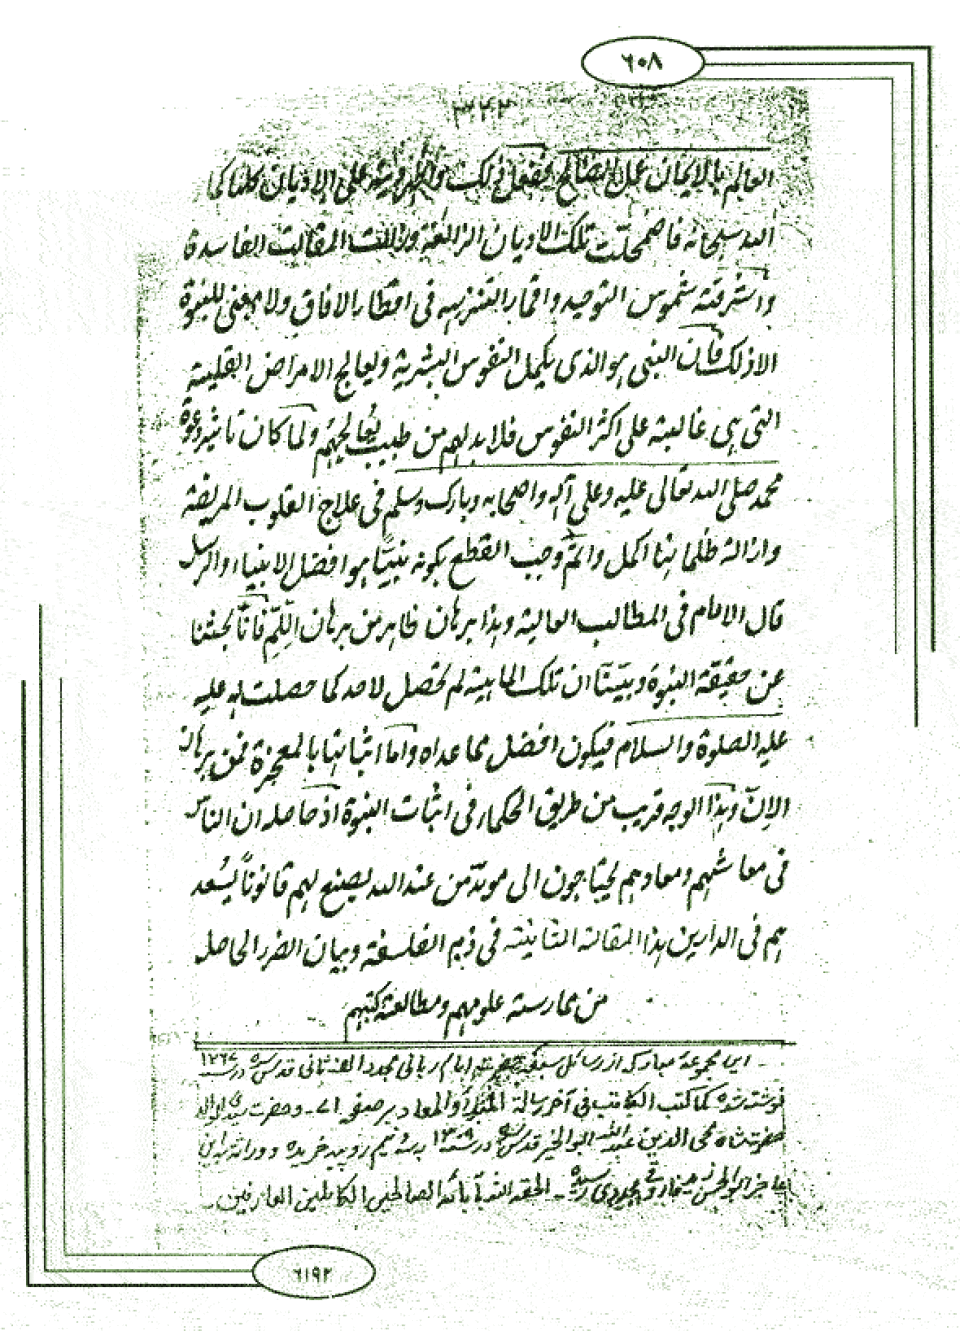 ٦٠٨
٣٤٢
العالم بالايمان عمل الصالح ففعل ذلك واظهر دينه على الاديان كلها كما
الله سبحانه فاضمحلت تلك الاديان الزائغة وزالت المقالات الفاسدة
واشرقت شموس التوحيد واقمار التنزيه فى اقطار الافاق ولا معنى للنبوة
الا ذلك فان النبى هو الذى يكمل النفوس البشرية ويعالج الامراض القلبية
التى هى غالبة على اكثر النفوس فلا بد لهم من طبيب يعالجهم ولما كان تاثير دعوة
محمد صلى الله تعالى عليه وعلى آله واصحابه وبارك وسلم فى علاج القلوب المريضة
وازالة ظلماتها اكمل واتم وجب القطع بكونه نبيا هو افضل الانبياء والرسل
قال الامام فى المطالب العالية وهذا برهان ظاهر من برهان اللم فانا بحثنا
عن حقيقة النبوة وبينا ان تلك الماهية لم تحصل لاحد كما حصلت له عليه
عليه الصلوة والسلام فيكون افضل مما عداه واما اثباتها بالمعجزة فمن برهان
الان وهذا الوجه قريب من طريق الحكماء فى اثبات النبوة اذ حاصله ان الناس
فى معاشهم ومعادهم يحتاجون الى مويد من عند الله يصنع لهم قانونا يسعد
هم فى الدارين هذا المقالة الثانية فى ذم الفلسفة وبيان الضرر الحاصل
من ممارسة علومهم ومطالعة كتبهم
اين مجموعۀ مباركه از رسائل سبعه امام ربانى مجدد الف ثانى قدس سره در
نوشته شده كما كتب الكاتب فى آخر رسالة المبدأ والمعاد بر صفحه ٧١ - وحضرت سيدى الوالد
حضرت شاه محى الدين عبد الله ابو الخير قدس سره در نيم روپيه خريده و
عاجز ابو الحسن زيد فاروقى مجددى رسيده - الحقه الله بآبائه الصالحين الكاملين العارفين -
٦١٩٢